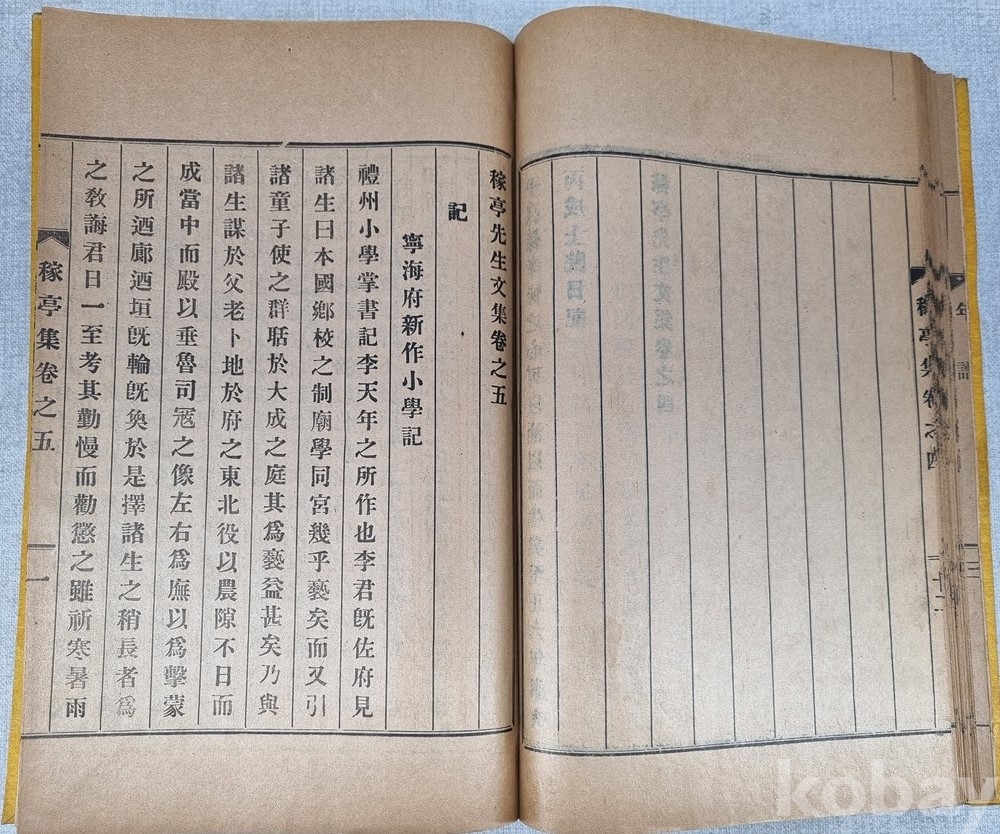 稼亭集卷之四
稼亭先生文集卷之五
記
寧海府新作小學記
禮州小學掌書記李天年之所作也李君旣佐府見
諸生曰本國鄕校之制廟學同宮幾乎褻矣而又引
諸童子使之群聒於大成之庭其爲褻益甚矣乃與
諸生謀於父老卜地於府之東北役以農隙不日而
成當中而殿以垂魯司寇之像左右爲廡以爲擊蒙
之所迺廊迺垣旣輪旣奐於是擇諸生之稍長者爲
之敎誨君日一至考其勤慢而勸懲之雖祈寒暑雨
稼亭集卷之五
一
kobay